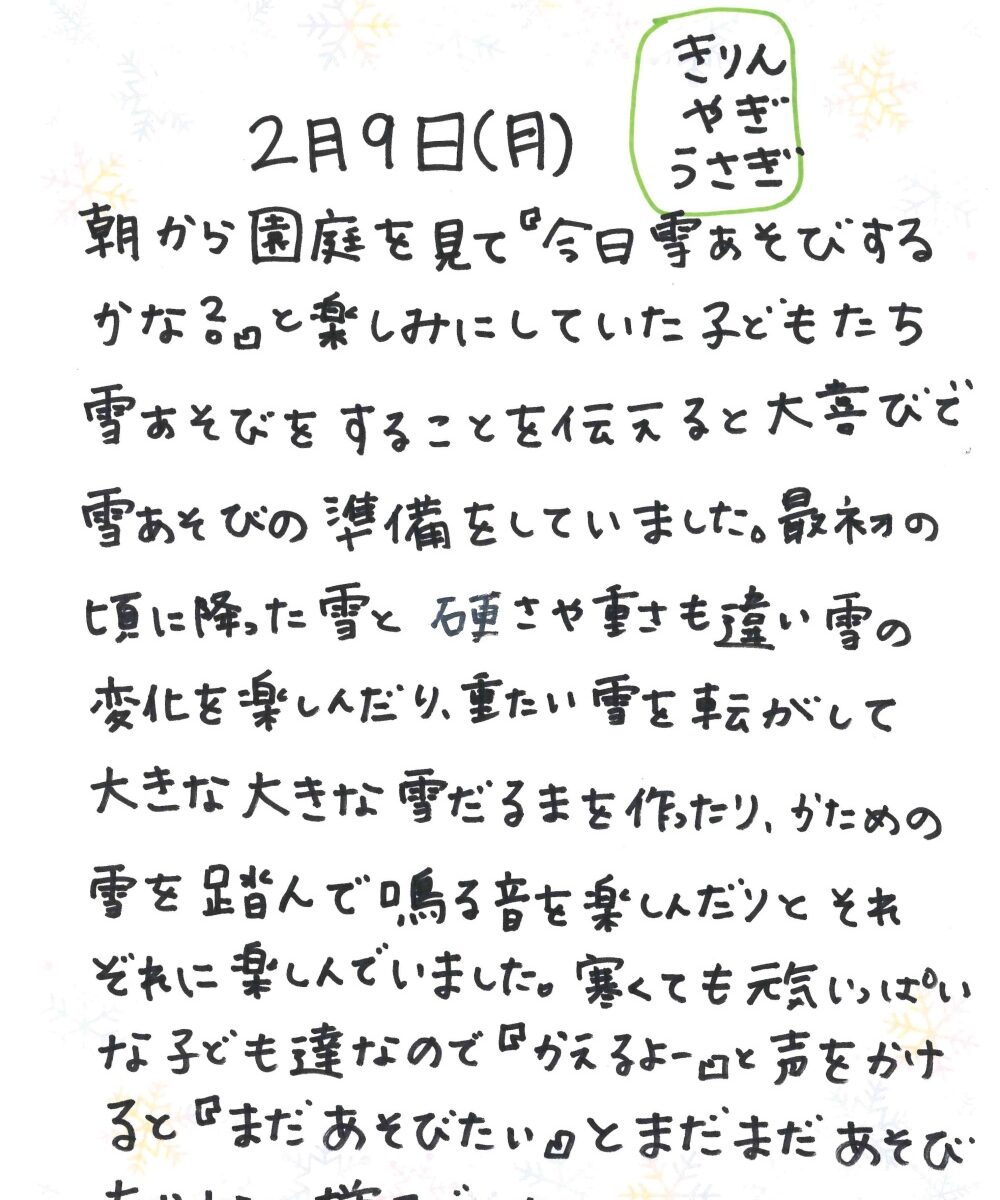 きりん
やぎ
うさぎ
2月9日(月)
朝から園庭を見て『今日雪あそびする
かな??』と楽しみにしていた子どもたち
雪あそびをすることを伝えると大喜びで
雪あそびの準備をしていました。最初の
頃に降った雪と硬さや重さも違い雪の
変化を楽しんだり、重たい雪を転がして
大きな大きな雪だるまを作ったり、かための
雪を踏んで鳴る音を楽しんだりとそれ
ぞれに楽しんでいました。寒くても元気いっぱい
な子ども達なので『かえるよー』と声をかけ
ると『まだあそびたい』とまだまだあそび